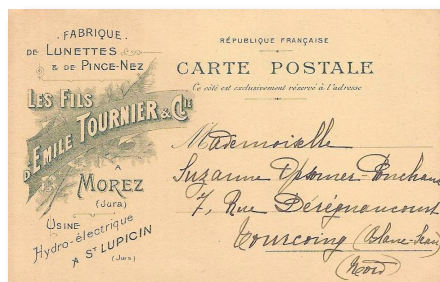 FABRIQUE
DE LUNETTES
& DE PINCE-NEZ
LES FILS
D'EMILE TOURNIER & CIE
A
MOREZ
(Jura)
USINE
Hydro-électrique
A ST LUPICIN
(Jura)
RÉPUBLIQUE FRANÇAISE
CARTE POSTALE
Ce côté est exclusivement réservé à l'adresse
Mademoiselle
Suzanne
7, Rue Derégnaucourt
Tourcoing (Blanc-Seau)
(Nord)